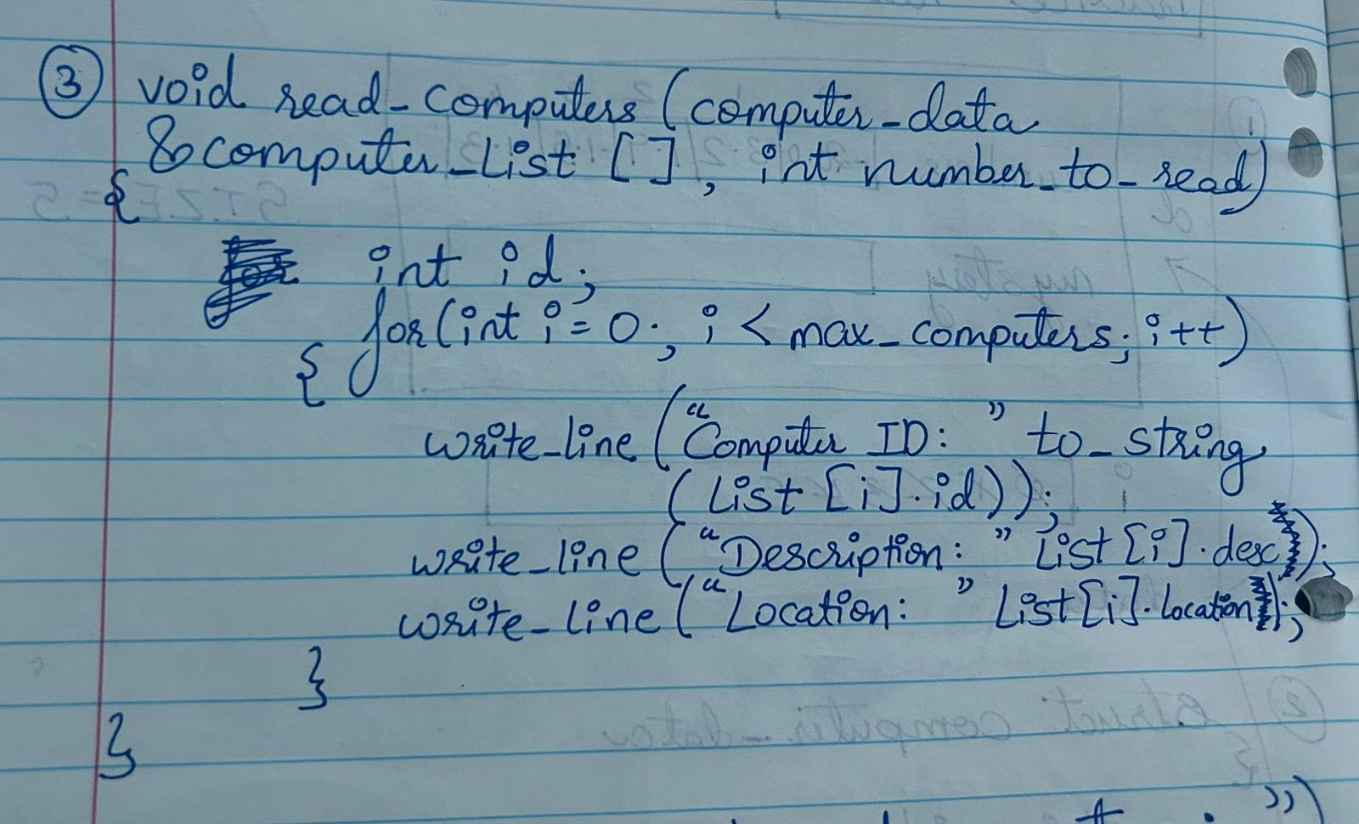 ③ void read_computers (computer_data
&computer_list [], int number_to_read)
{
int id;
for(int i=0; i < max_computers; i++)
{
write_line ("Computer ID: " to_string
(list [i].id));
write_line ("Description: " list [i].desc);
write_line ("Location: " list[i].location);
}
}
")